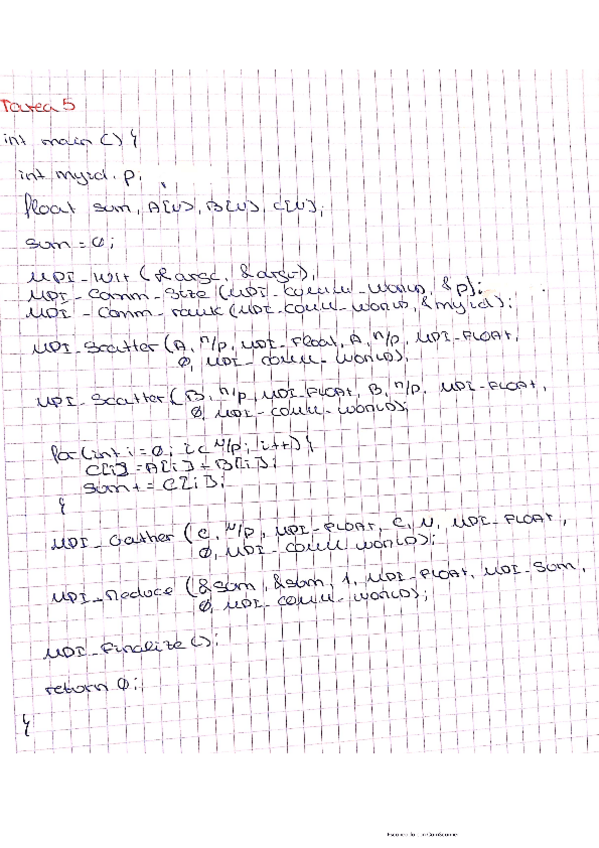 Tarea 5
int main () {
int myid, p,
float sum, A[N], B[N], C[N],
sum = 0;
MPI_Init (&argc, &argv),
MPI_Comm_Size (MPI_COMM_WORLD, &p);
MPI_Comm_rank (MPI_COMM_WORLD, &myid);
MPI_Scatter (A, n/p, MPI_Float, A, n/p, MPI_FLOAT,
0, MPI_COMM_WORLD),
MPI_Scatter (B, n/p, MPI_FLOAT, B, n/p, MPI_FLOAT,
0, MPI_COMM_WORLD);
for (int i = 0; i < N/p; i++) {
C[i] = A[i] + B[i];
sum += C[i];
}
MPI_Gather (C, N/p, MPI_FLOAT, C, N, MPI_FLOAT,
0, MPI_COMM_WORLD);
MPI_Reduce (&sum, &sum, 1, MPI_FLOAT, MPI_SUM,
0, MPI_COMM_WORLD);
MPI_Finalize ();
return 0;
}